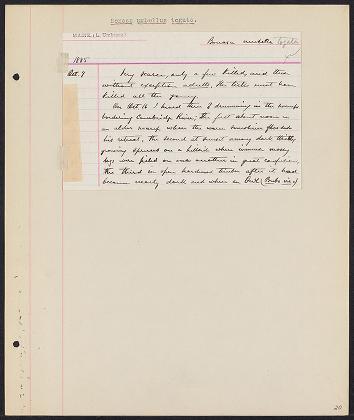 Bonasa umbellus togata.
MAINE, (L. Umbagog)
Bonasa umbellus togata
1885
Oct. 9
Very scarce, only a few killed, and these
without exception adults. The ticks must have
killed all the young.
On Oct 16 I heard three drumming in the swamps
bordering Cambridge River, the first about noon in
an alder swamp where the warm sunshine flooded
his retreat, the second at sunset among dark thickly
growing spruces on a hillside where immense mossy
logs were piled on one another in great confusion,
the third in open hardwood timber after it had
become nearly dark and when an owl
20